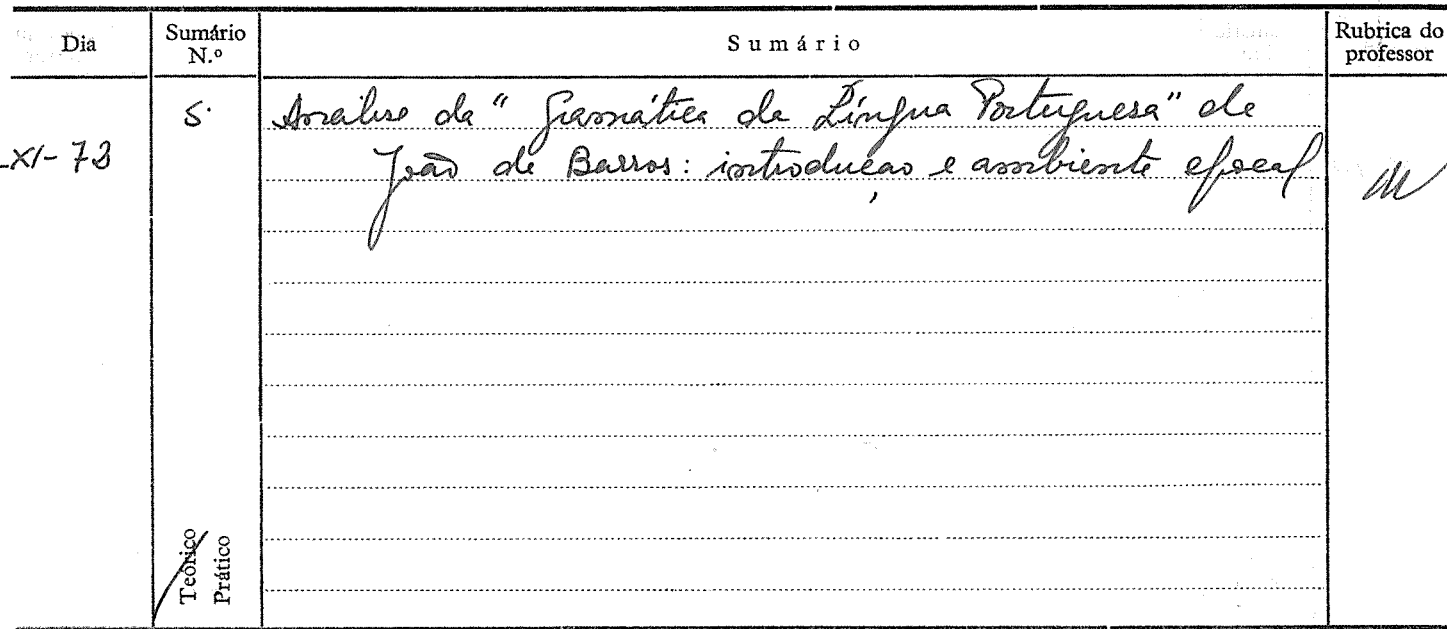 Dia
Sumário N.º
Sumário
Rubrica do professor
-XI-73
5.
Análise da "Gramática da Língua Portuguesa" de
João de Barros: introdução e ambiente epocal
Teórico
Prático